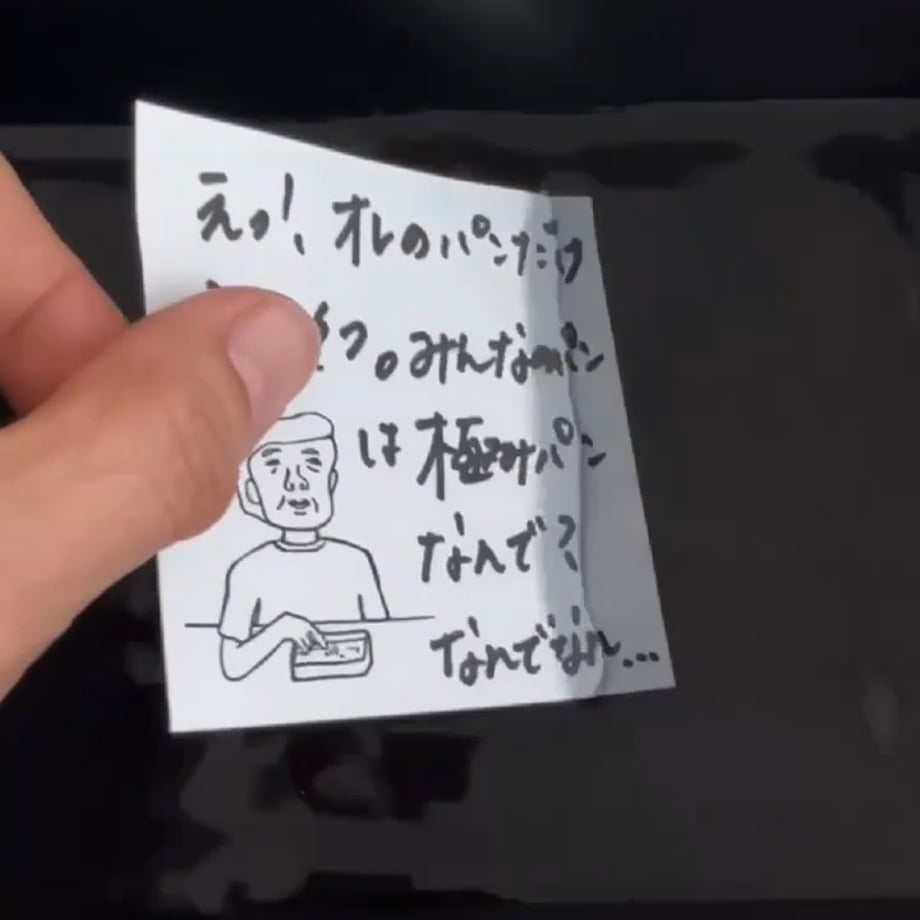 えっ!、オレのパンだけ
?。みんなのパン
は極みパン
なんで?
なんでなん...